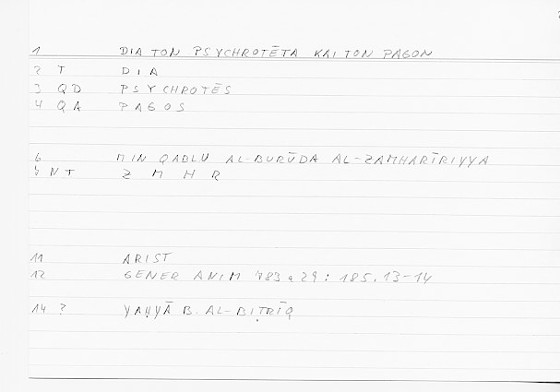 1 DIA TON PSYCHROTĒTA KAI TON PAGON
2 T DIA
3 QD PSYCHROTĒS
4 QA PAGOS
6 MIN QABLU AL-BURŪDA AL-ZAMHARĪRIYYA
7 NT Z M H R
11 ARIST
12 GENER ANIM 783 a 29 : 185.13-14
14 ? YAḤYĀ B. AL-BIṬRĪQ